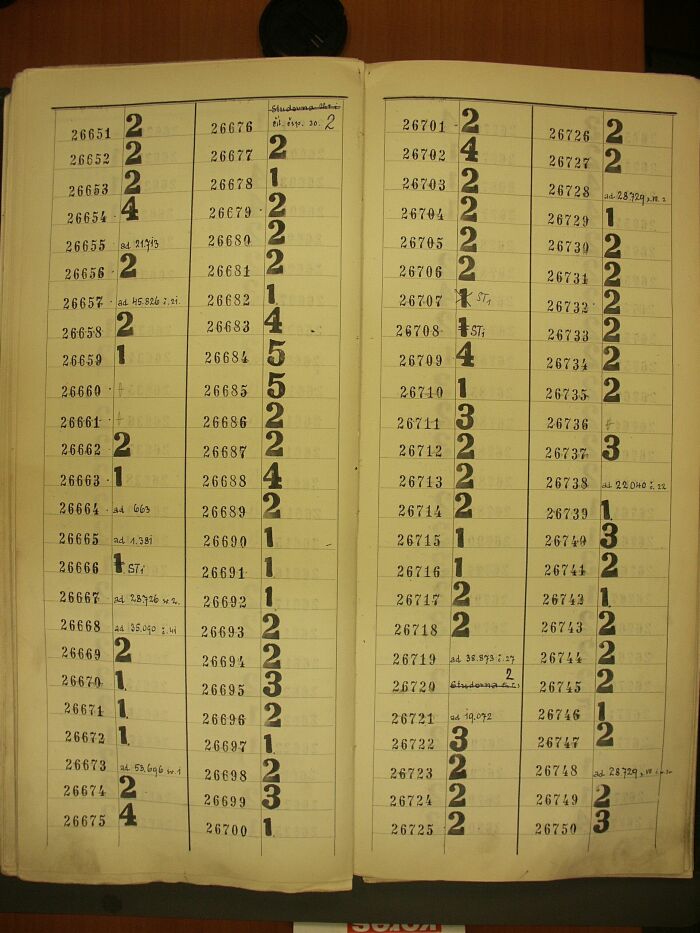 26651 2
26652 2
26653 2
26654 4
26655 ad 21.713
26656 2
26657 ad 45.826 i.21.
26658 2
26659 1
26660 †
26661 †
26662 2
26663 1
26664 ad 663
26665 ad 1.381
26666 1 ST1
26667 ad 28726 w 2.
26668 ad 35.090 i.41
26669 2
26670 1
26671 1
26672 1
26673 ad 53.696 w 1
26674 2
26675 4
Studovna
26676 2
26677 2
26678 1
26679 2
26680 2
26681 2
26682 1
26683 4
26684 5
26685 5
26686 2
26687 2
26688 4
26689 2
26690 1
26691 1
26692 1
26693 2
26694 2
26695 3
26696 2
26697 1
26698 2
26699 3
26700 1
26701 2
26702 4
26703 2
26704 2
26705 2
26706 2
26707 1 ST1
26708 1 ST1
26709 4
26710 1
26711 3
26712 2
26713 2
26714 2
26715 1
26716 1
26717 2
26718 2
26719 ad 38.873 i.27
26720 Studovna 2
26721 ad 19.072
26722 3
26723 2
26724 2
26725 2
26726 2
26727 2
26728 ad 28729
26729 1
26730 2
26731 2
26732 2
26733 2
26734 2
26735 2
26736 †
26737 3
26738 ad 22040 i.22
26739 1
26740 3
26741 2
26742 1
26743 2
26744 2
26745 2
26746 1
26747 2
26748 ad 28729
26749 2
26750 3